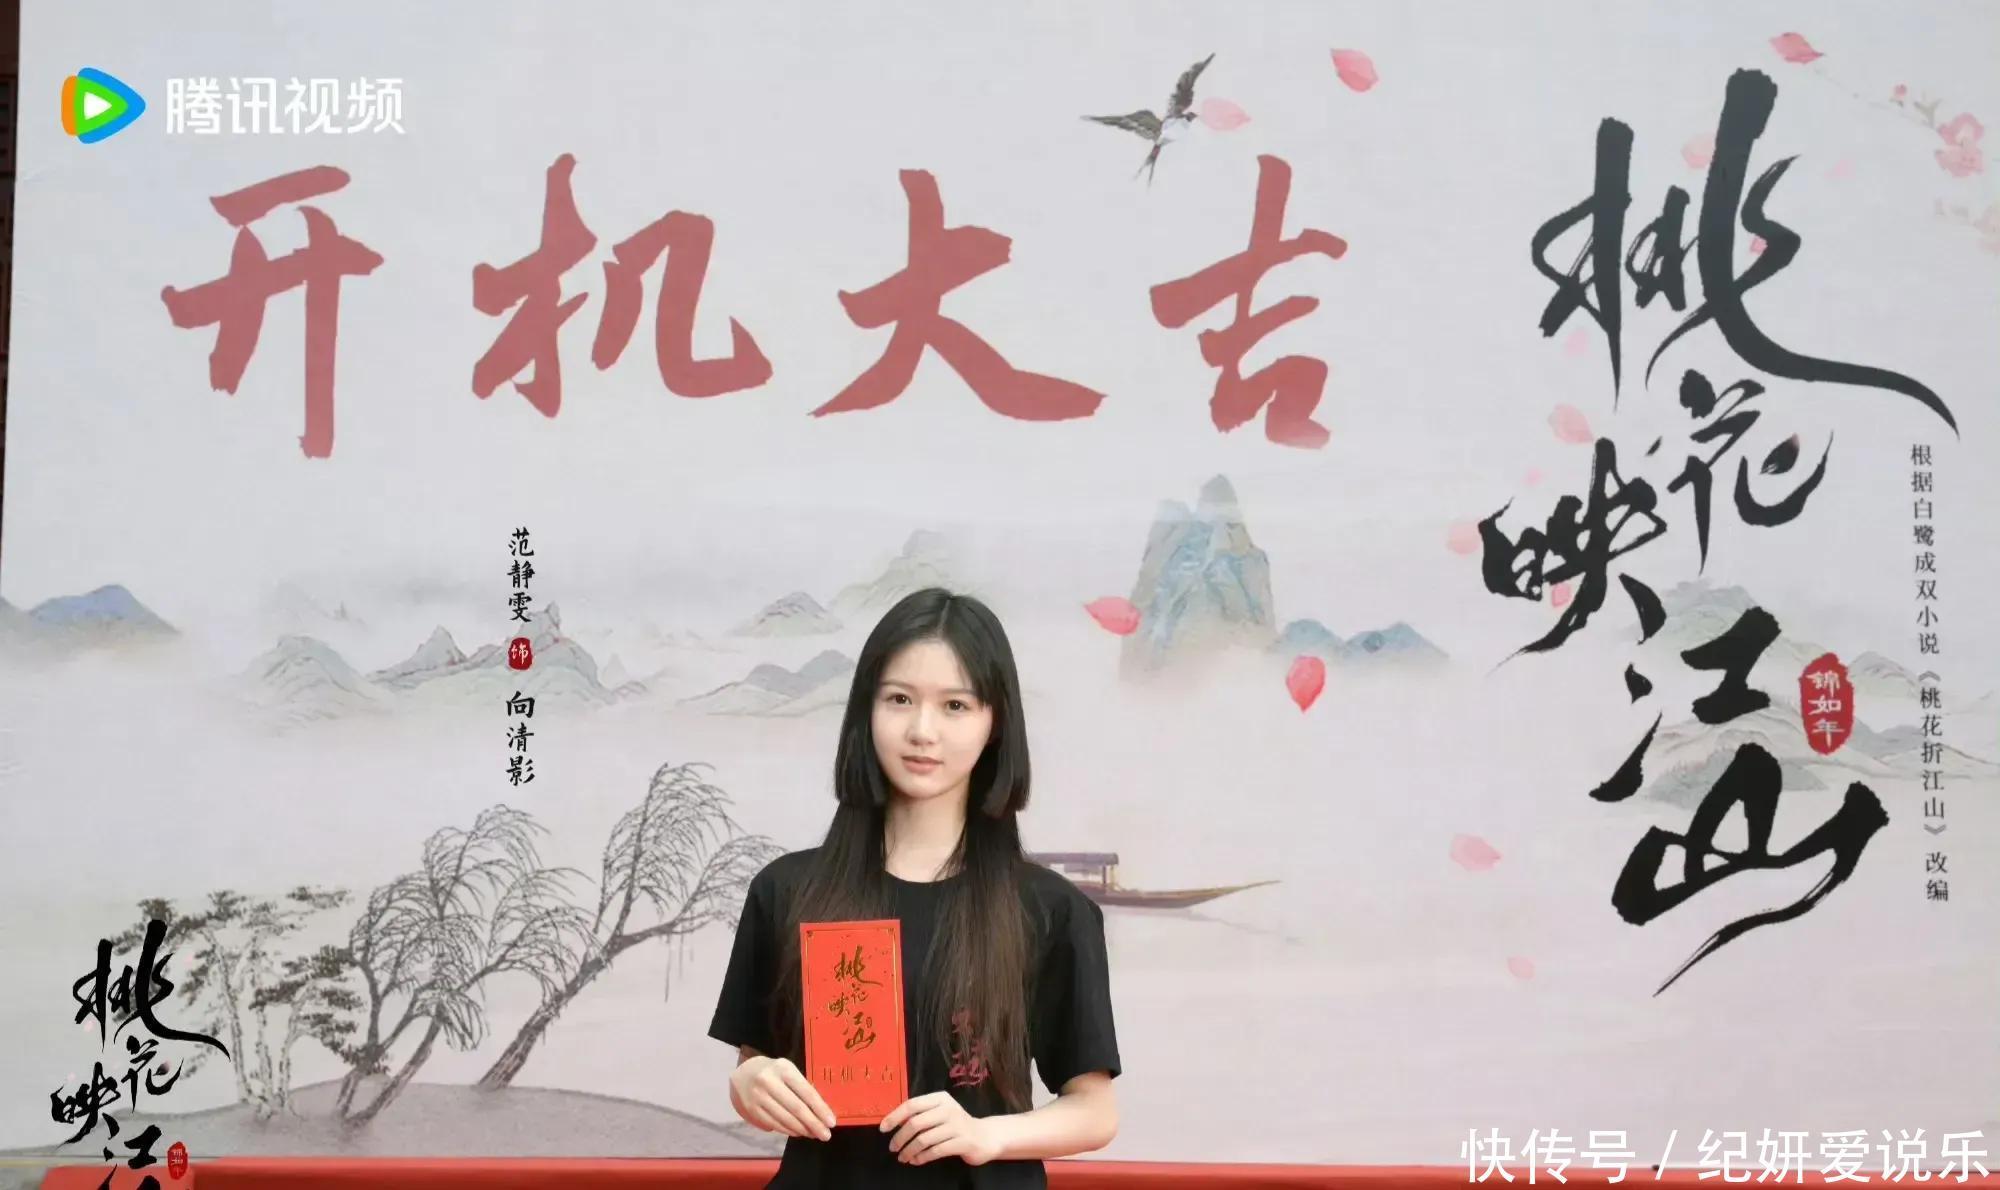 腾讯视频
开机大吉
桃花映江山
錦如年
根据白鹭成双小说《桃花折江山》改编
范静雯 饰 向清影
桃花映江山
开机大吉
桃花映江
錦如年
快传号 / 纪妍爱说乐